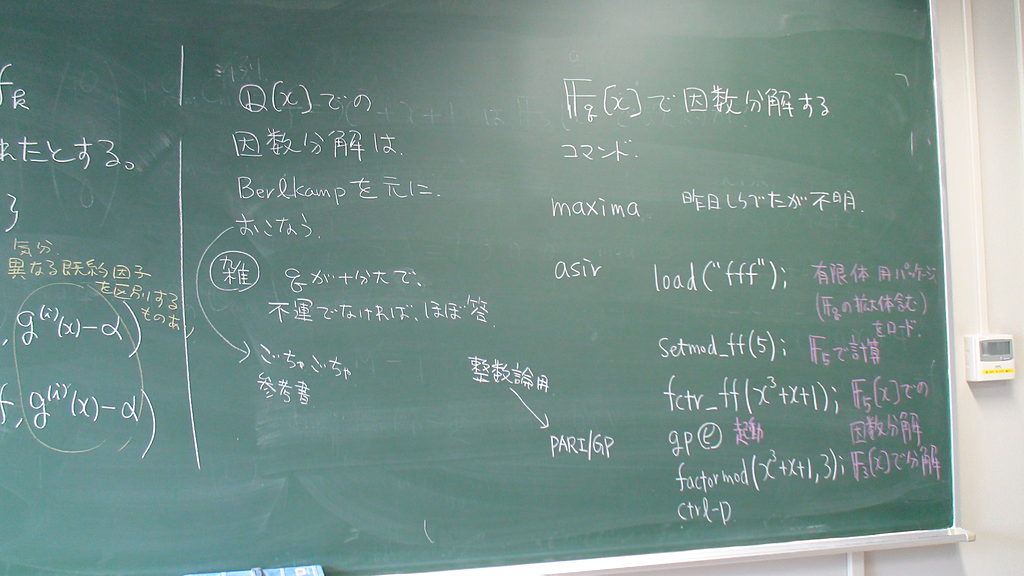 れたとする。
気分
異なる既約因子
を区別する
g⁽ⁱ⁾(x)-α)
f, g⁽ⁱ⁾(x)-α)
Q[x]での
因数分解は.
Berlkampを元に.
おこなう.
雑 qが十分大で、
不運でなければ、ほぼ答.
ごちゃごちゃ
参考書
整数論用
PARI/GP
F_q[x]で因数分解する
コマンド.
maxima 昨日しらべたが不明.
asir load("fff"); 有限体用パッケージ
(F_qの拡大体含む)
をロード.
setmod_ff(5); F₅で計算
fctr_ff(x³+x+1); F₅[x]での
因数分解
gp 起動
factormod(x³+x+1,3); F₃[x]で分解
ctrl-D